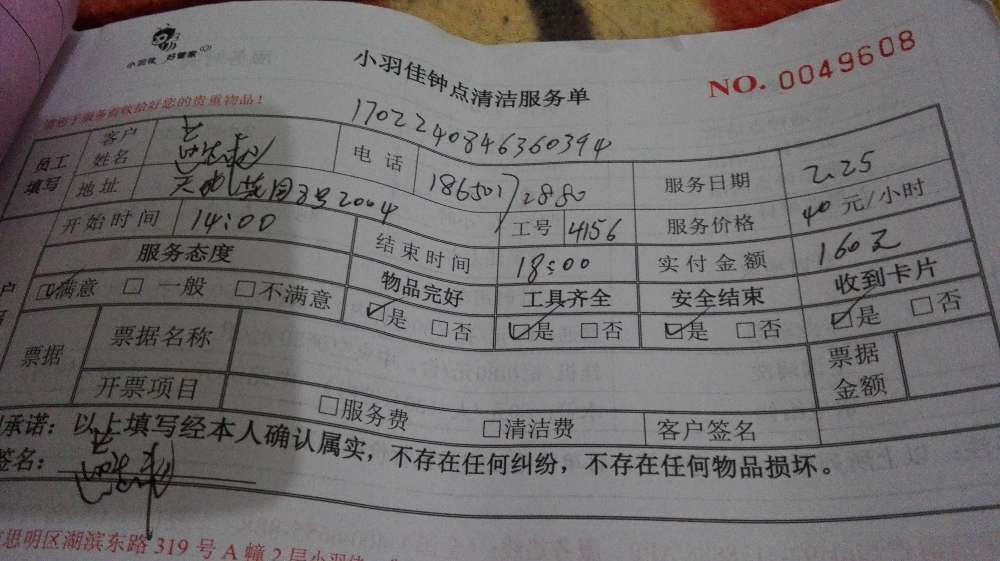 小羽佳 好管家
小羽佳钟点清洁服务单
NO. 0049608
请您于服务前收拾好您的贵重物品！
1702240846360394
员工填写 客户姓名 电话 18650172880 服务日期 2.25
地址 3号2004 工号 4156 服务价格 40 元/小时
开始时间 14:00 结束时间 18:00 实付金额 160元
服务态度 物品完好 工具齐全 安全结束 收到卡片
☑满意 □一般 □不满意 ☑是 □否 ☑是 □否 ☑是 □否 ☑是 □否
票据 票据名称 票据金额
开票项目 □服务费 □清洁费 客户签名
承诺：以上填写经本人确认属实，不存在任何纠纷，不存在任何物品损坏。
签名：
思明区湖滨东路 319 号 A 幢 2 层小羽佳